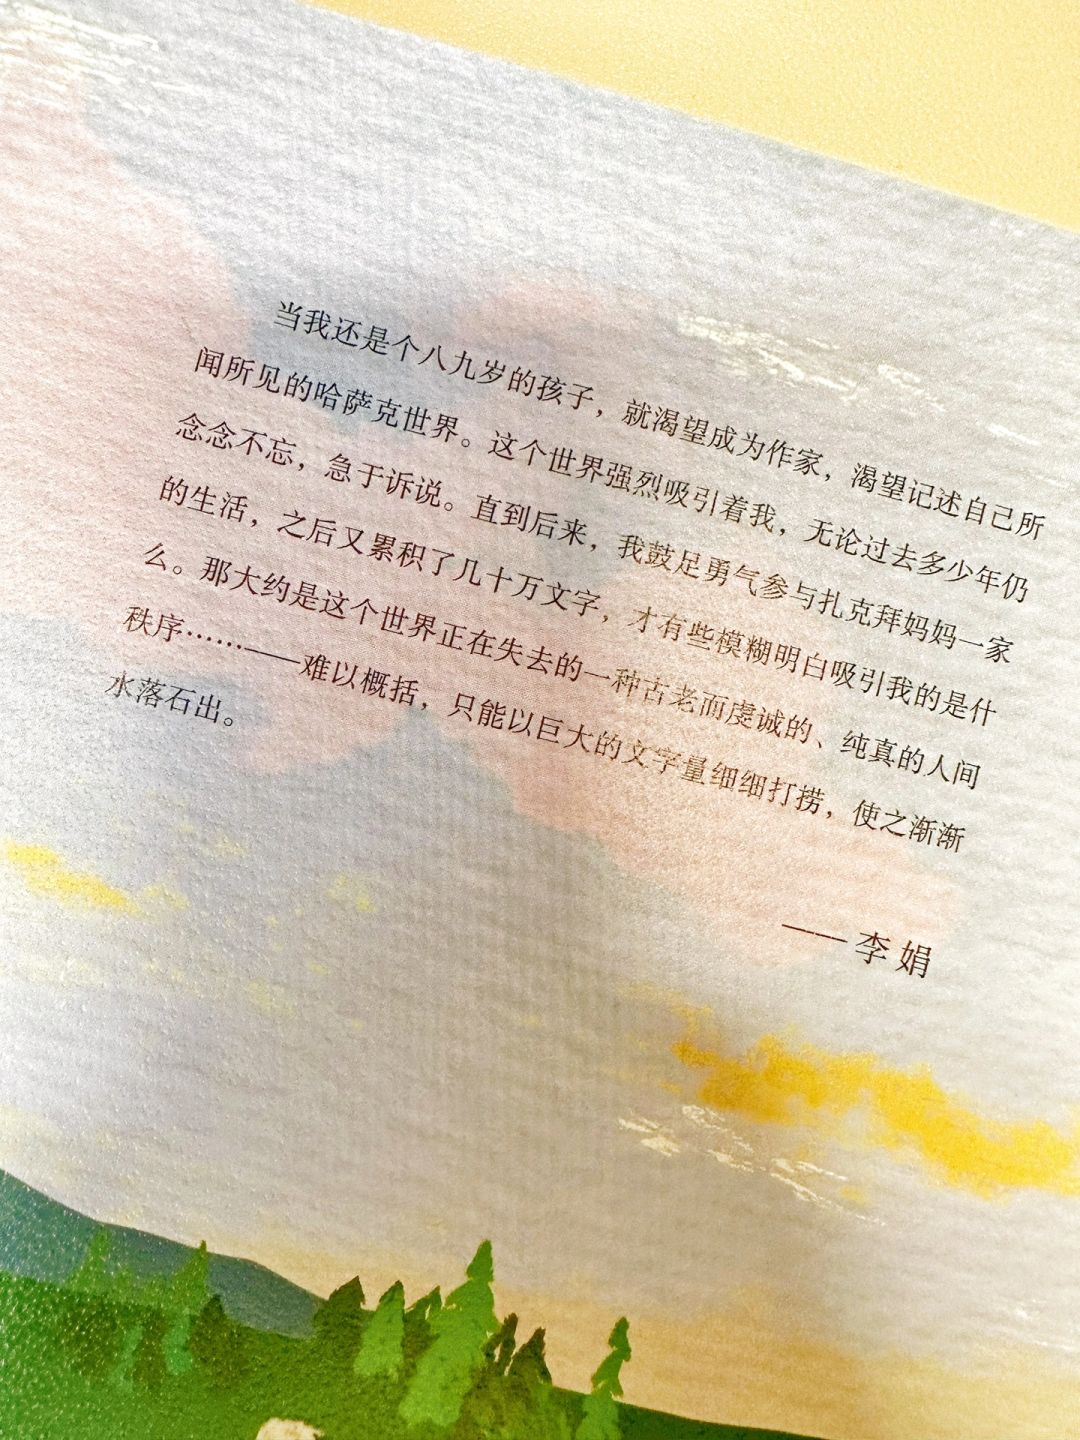 当我还是个八九岁的孩子，就渴望成为作家，渴望记述自己所
闻所见的哈萨克世界。这个世界强烈吸引着我，无论过去多少年仍
念念不忘，急于诉说。直到后来，我鼓足勇气参与扎克拜妈妈一家
的生活，之后又累积了几十万文字，才有些模糊明白吸引我的是什
么。那大约是这个世界正在失去的一种古老而虔诚的、纯真的人间
秩序……——难以概括，只能以巨大的文字量细细打捞，使之渐渐
水落石出。
——李娟